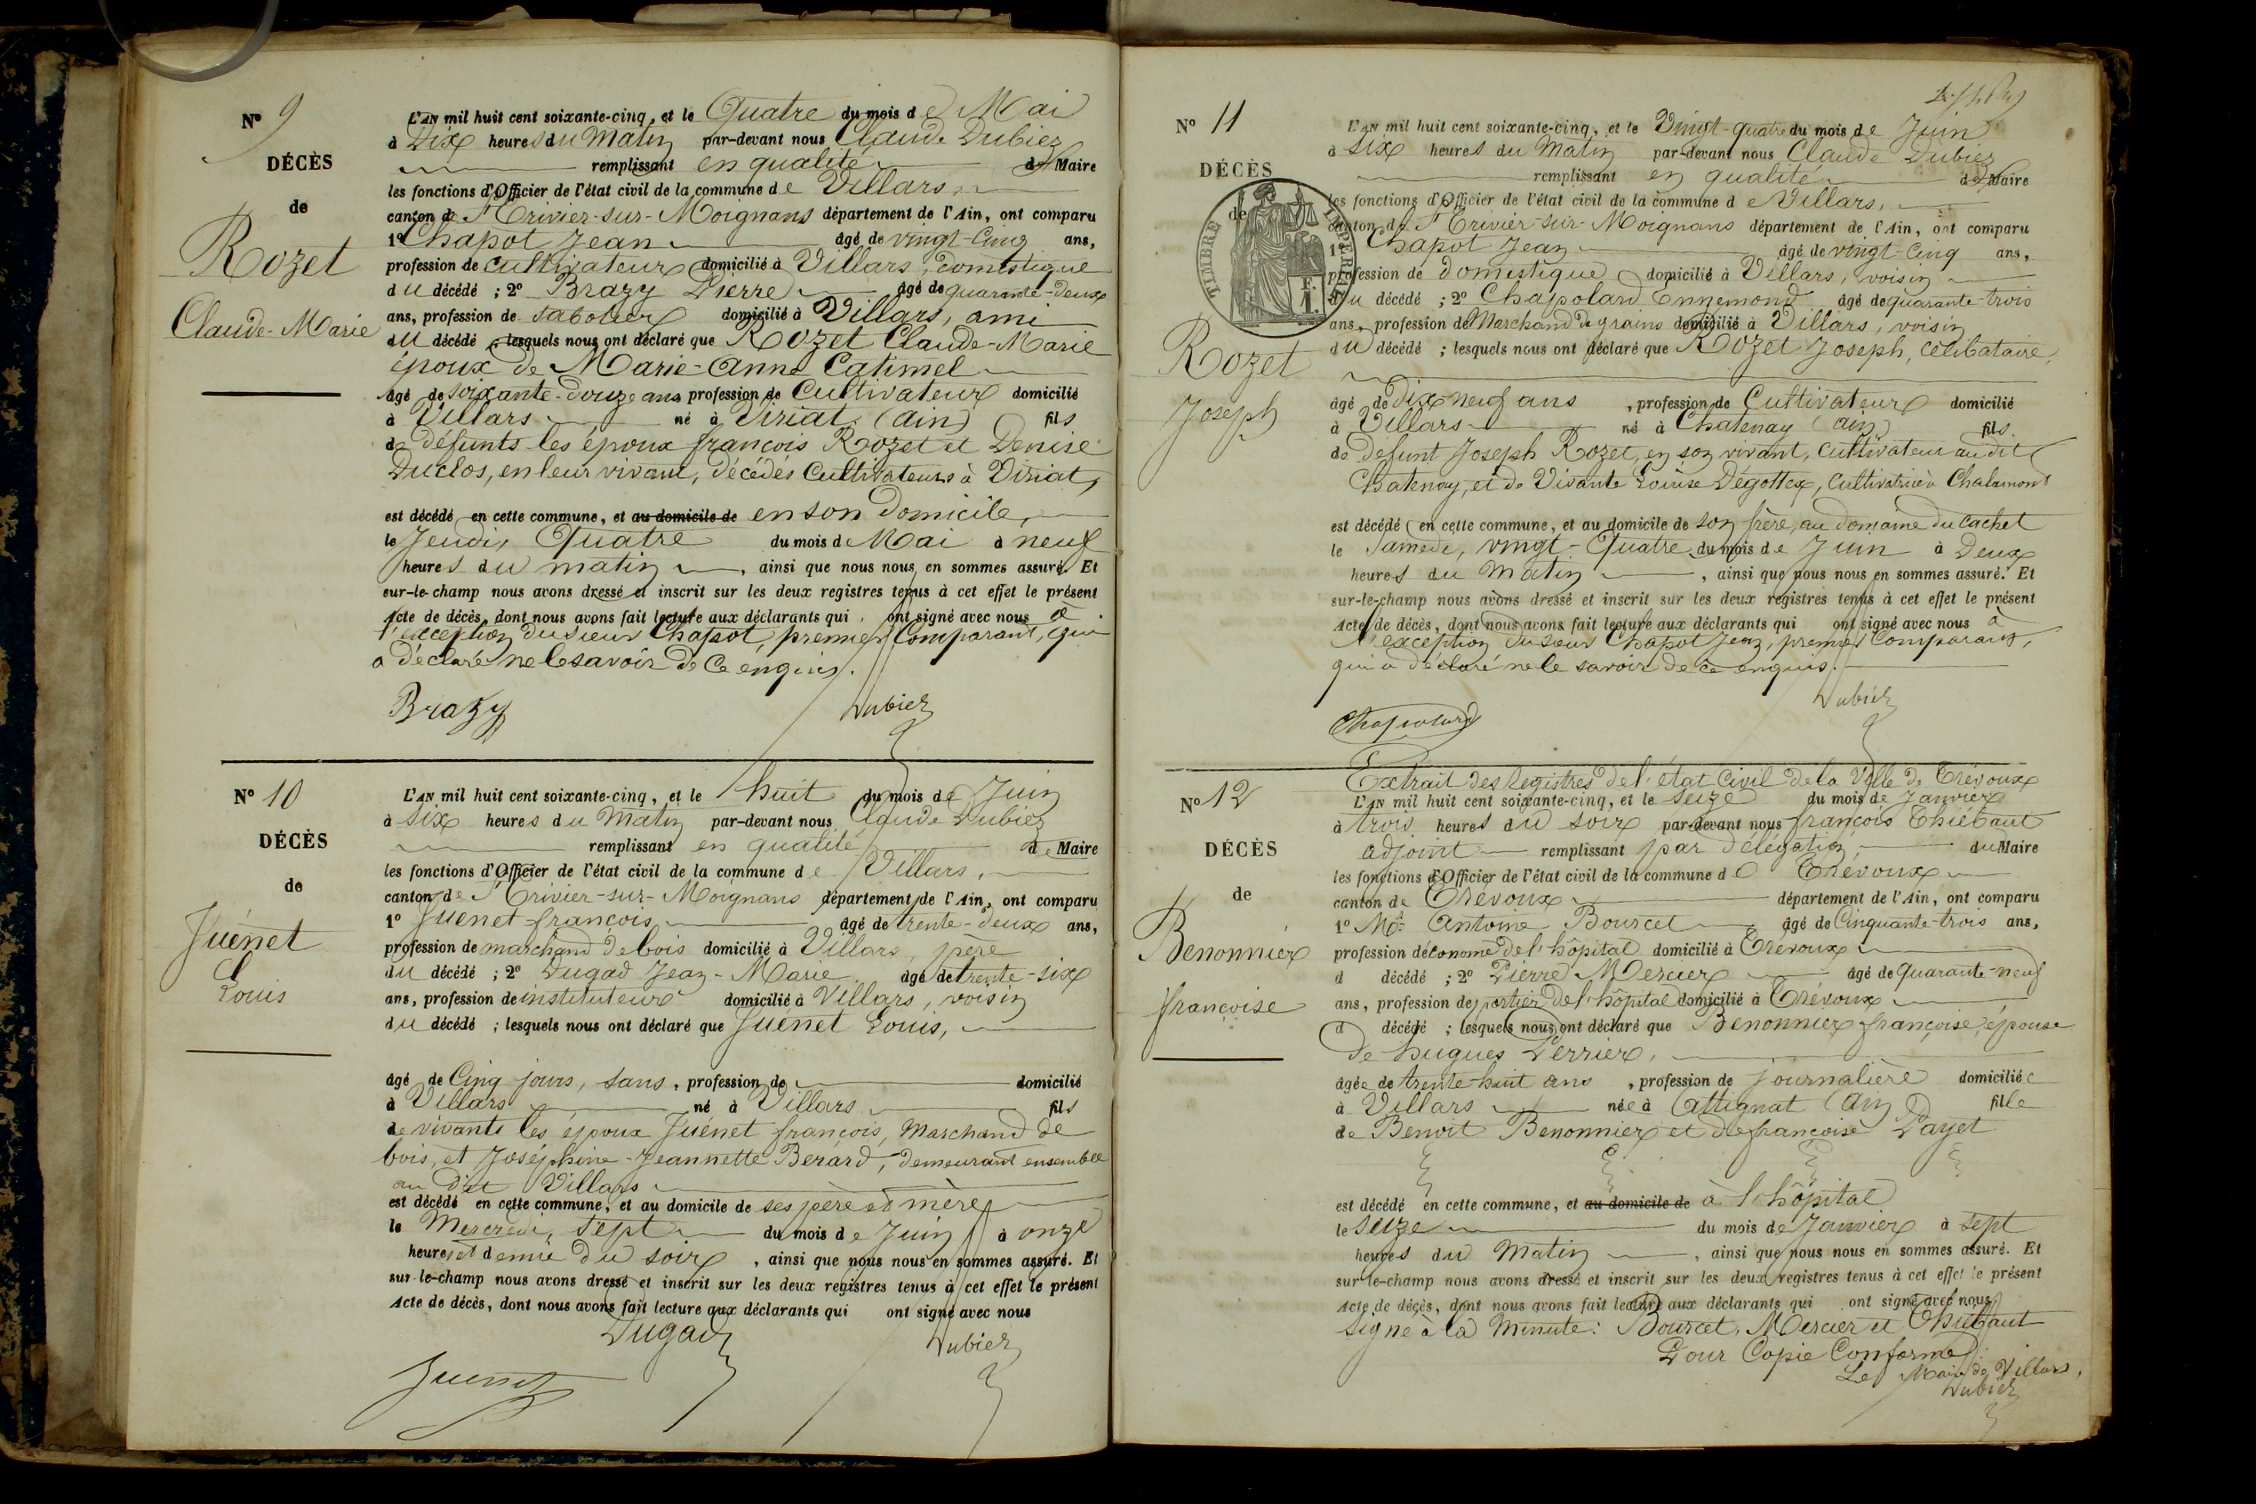 Nº 9
DÉCÈS
de
Rozet
Claude-Marie
L'AN mil huit cent soixante-cinq, et le Quatre du mois de Mai
à Dix heures du Matin par-devant nous Claude Dubiez
remplissant en qualité de Maire
les fonctions d'Officier de l'état civil de la commune de Villars,
canton de St Trivier-sur-Moignans département de l'Ain, ont comparu
1º Chapot Jean âgé de vingt-Cinq ans,
profession de cultivateur domicilié à Villars, domestique
du décédé ; 2º Brazy Pierre âgé de quarante-deux
ans, profession de sabotier domicilié à Villars, ami
du décédé ; lesquels nous ont déclaré que Rozet Claude-Marie
époux de Marie-Anne Catimel
âgé de soixante-douze ans profession de Cultivateur domicilié
à Villars né à Viriat (Ain) fils
de défunts les époux françois Rozet et Denise
Duclos, en leur vivant, décédés Cultivateurs à Viriat,
est décédé en cette commune, et au domicile de en son Domicile,
le Jeudi, Quatre du mois de Mai à neuf
heures du matin, ainsi que nous nous en sommes assuré. Et
sur-le-champ nous avons dressé et inscrit sur les deux registres tenus à cet effet le présent
Acte de décès, dont nous avons fait lecture aux déclarants qui ont signé avec nous à
l'exception du sieur Chapot, premier Comparant, qui
a déclaré ne le savoir de ce enquis.
Brazy Dubiez
Nº 10
DÉCÈS
de
Juénet
Louis
L'AN mil huit cent soixante-cinq, et le huit du mois de Juin
à six heures du Matin par-devant nous Claude Dubiez
remplissant en qualité de Maire
les fonctions d'Officier de l'état civil de la commune de Villars,
canton de St Trivier-sur-Moignans département de l'Ain, ont comparu
1º Juénet françois, âgé de trente-deux ans,
profession de marchand de bois domicilié à Villars, père
du décédé ; 2º Dugad Jean-Marie âgé de trente-six
ans, profession de instituteur domicilié à Villars, voisin
du décédé ; lesquels nous ont déclaré que Juénet Louis,
âgé de Cinq jours, sans, profession de domicilié
à Villars né à Villars fils
de vivants les époux Juénet françois, Marchand de
bois, et Joséphine-Jeannette Berard, demeurant ensemble
au dit Villars
est décédé en cette commune, et au domicile de ses père et mère
le Mercredi, sept du mois de Juin à onze
heures et demie du soir, ainsi que nous nous en sommes assuré. Et
sur-le-champ nous avons dressé et inscrit sur les deux registres tenus à cet effet le présent
Acte de décès, dont nous avons fait lecture aux déclarants qui ont signé avec nous
Dugad Dubiez
Juenet
Nº 11
DÉCÈS
de
TIMBRE IMPÉRIAL
Rozet
Joseph
L'AN mil huit cent soixante-cinq, et le Vingt-quatre du mois de Juin
à six heures du Matin par-devant nous Claude Dubiez
remplissant en qualité de Maire
les fonctions d'Officier de l'état civil de la commune de Villars,
canton de St Trivier-sur-Moignans département de l'Ain, ont comparu
1º Chapot Jean âgé de vingt-Cinq ans,
profession de domestique domicilié à Villars, voisin
du décédé ; 2º Chapoland Ennemond âgé de quarante-trois
ans, profession de Marchand de grains domicilié à Villars, voisin
du décédé ; lesquels nous ont déclaré que Rozet Joseph, célibataire,
âgé de Dix neuf ans, profession de Cultivateur domicilié
à Villars né à Chatenay (Ain) fils
de défunt Joseph Rozet, en son vivant, cultivateur au dit
Chatenay, et de Vivante Louise Dégottex, Cultivatrice à Chalamont
est décédé en cette commune, et au domicile de son frère, au domaine du Cachet
le Samedi, vingt-Quatre du mois de Juin à Deux
heures du Matin, ainsi que nous nous en sommes assuré. Et
sur-le-champ nous avons dressé et inscrit sur les deux registres tenus à cet effet le présent
Acte de décès, dont nous avons fait lecture aux déclarants qui ont signé avec nous à
l'exception du sieur Chapot Jean, premier Comparant,
qui a déclaré ne le savoir de ce enquis.
Dubiez
Chapoland
Nº 12
DÉCÈS
de
Benonnier
françoise
Extrait des Registres de l'état Civil de la Ville de Trévoux
L'AN mil huit cent soixante-cinq, et le seize du mois de Janvier
à trois heures du soir par-devant nous françois Thiébaut
adjoint remplissant par délégation du Maire
les fonctions d'Officier de l'état civil de la commune de Trévoux
canton de Trévoux département de l'Ain, ont comparu
1º Mr Antoine Bourcet âgé de Cinquante-trois ans,
profession d'économe de l'hôpital domicilié à Trévoux
d décédé ; 2º Pierre Mercier âgé de quarante-neuf
ans, profession de portier de l'hôpital domicilié à Trévoux
d décédé ; lesquels nous ont déclaré que Benonnier françoise, épouse
de hugues Perrier,
âgée de trente-huit ans, profession de journalière domiciliée
à Villars née à Attignat (Ain) fille
de Benoit Benonnier et de françoise Payet
est décédé en cette commune, et au domicile de à l'hôpital
le seize du mois de Janvier à sept
heures du Matin, ainsi que nous nous en sommes assuré. Et
sur-le-champ nous avons dressé et inscrit sur les deux registres tenus à cet effet le présent
Acte de décès, dont nous avons fait lecture aux déclarants qui ont signé avec nous
Signé à la Minute : Bourcet, Mercier et Thiébaut
Pour Copie Conforme
Le Maire de Villars,
Dubiez